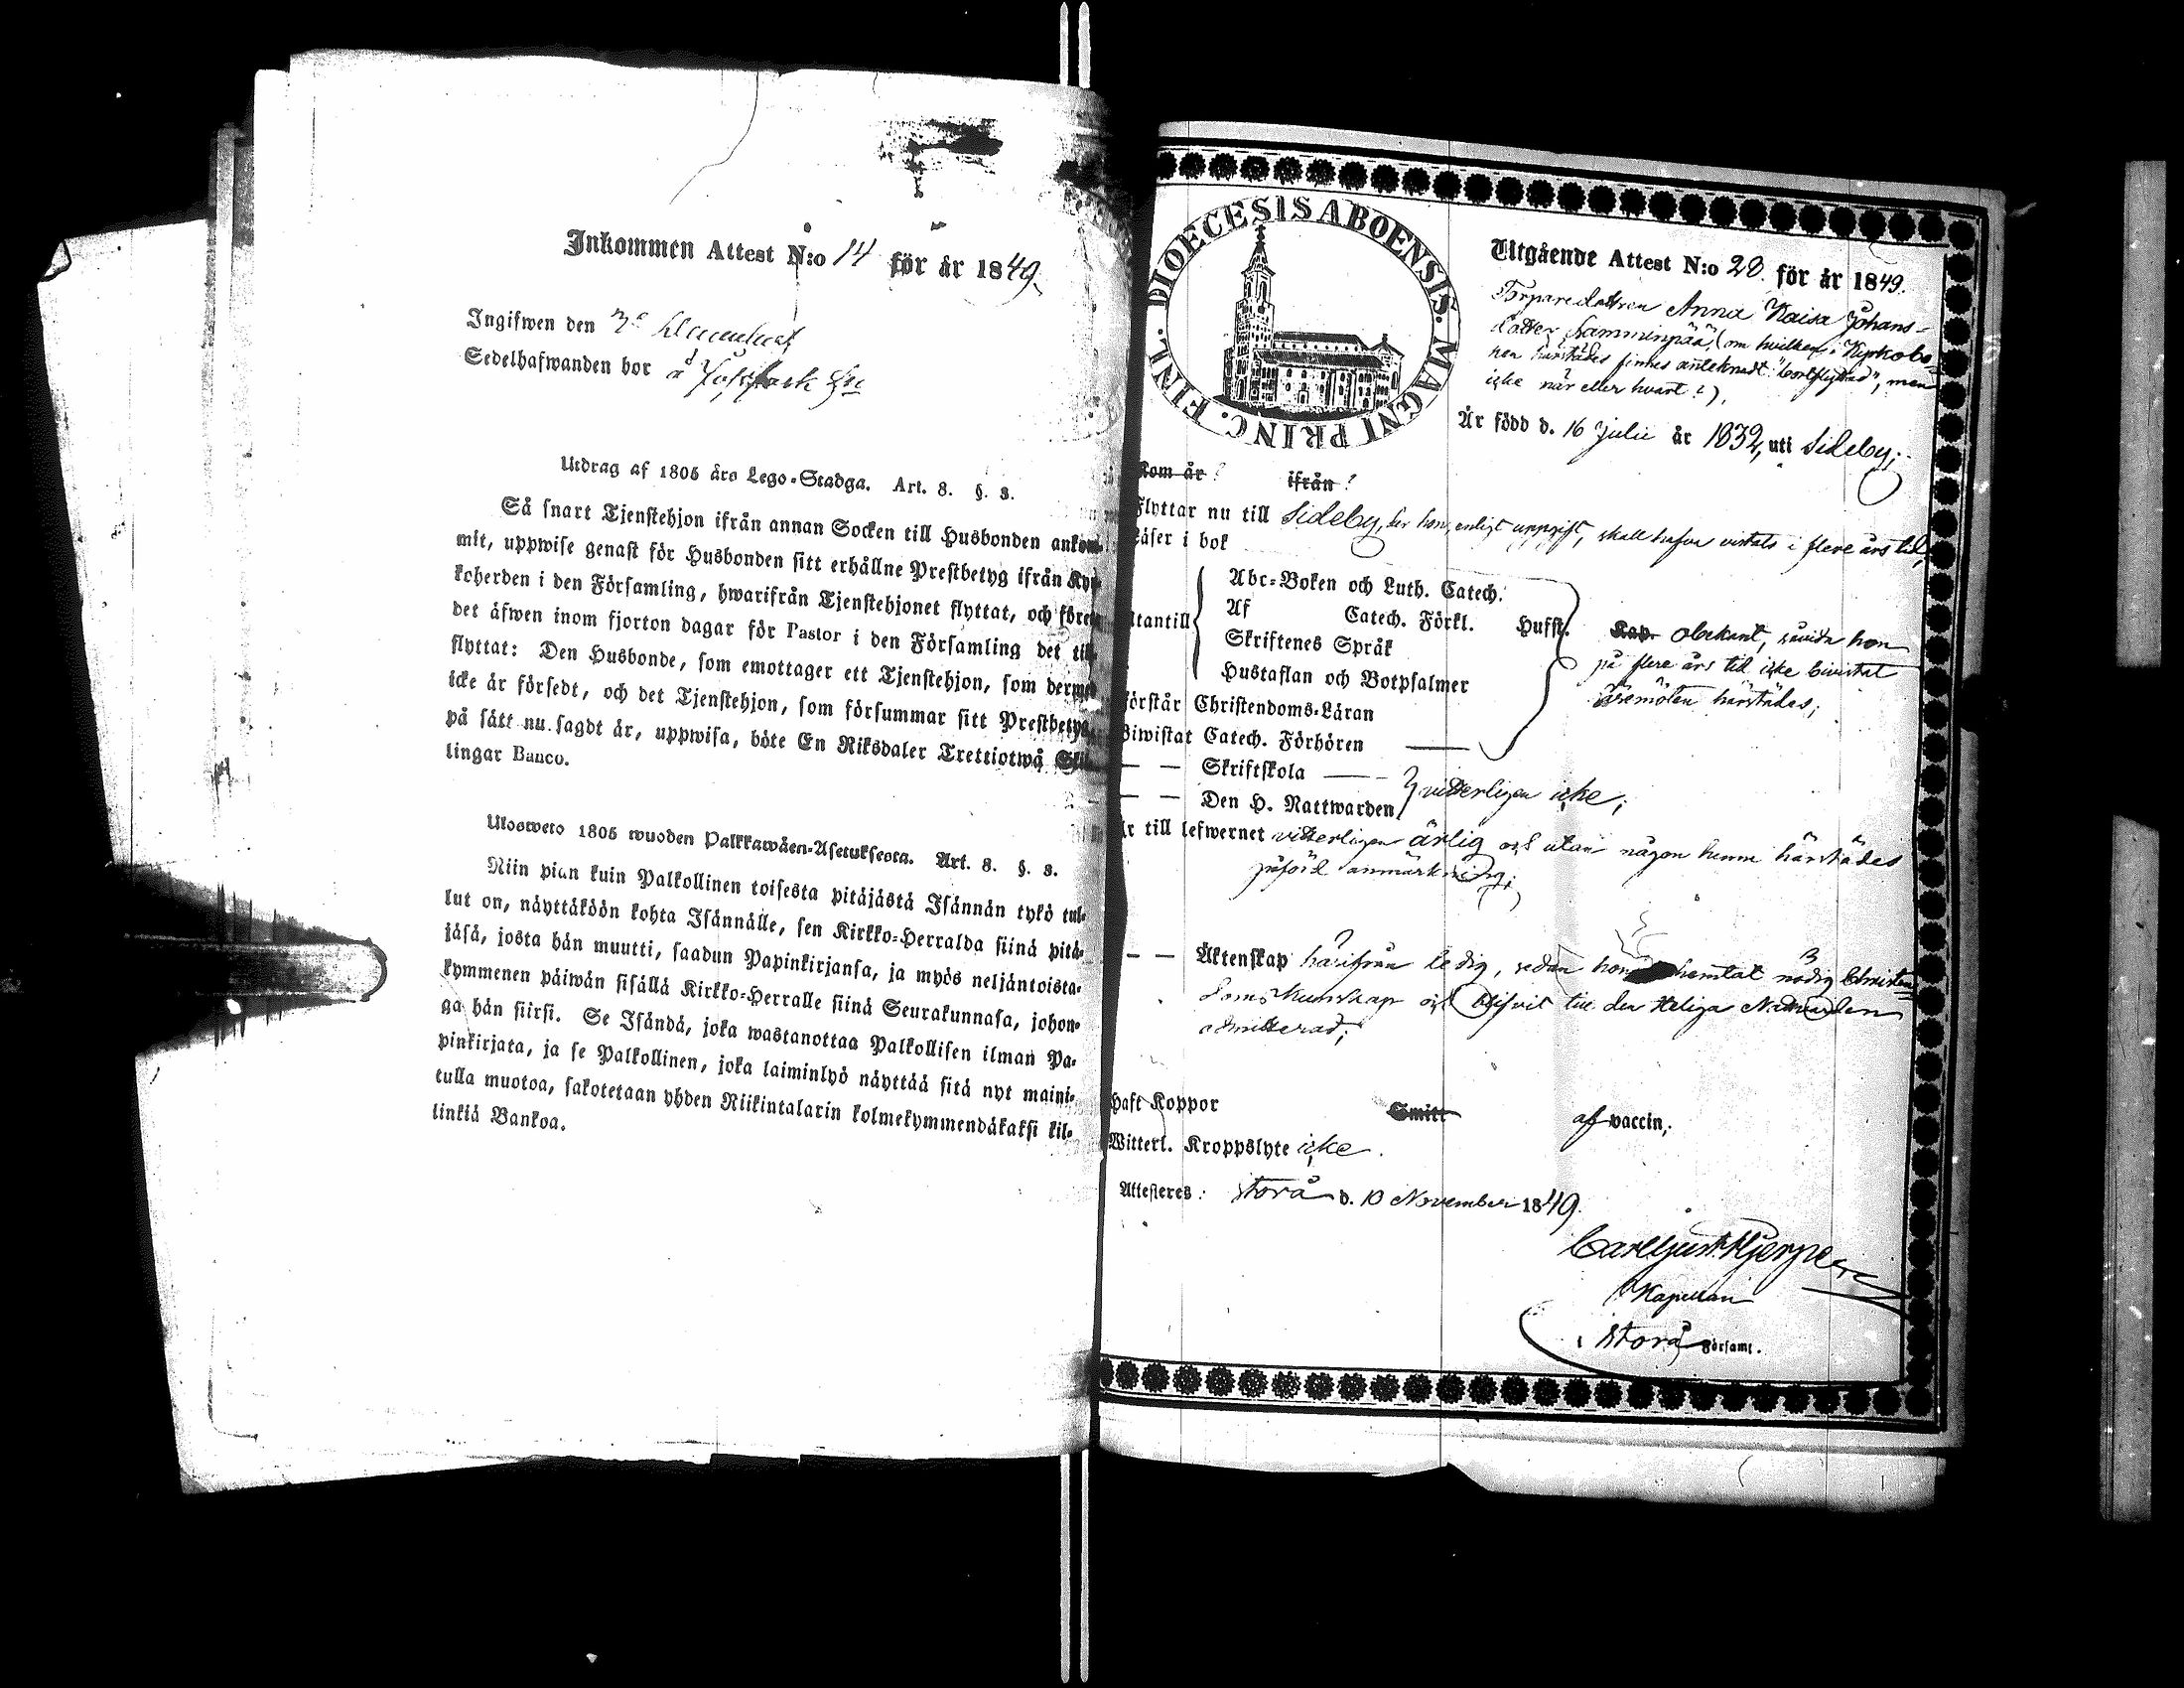 Inkommen Attest N:o 14 för år 1849.
Ingifwen den
Sedelhafwanden bor å
Utdrag af 1805 års Lego-Stadga. Art. 8. §. 3.
Så snart Tjenstehjon ifrån annan Socken till Husbonden ankom-
mit, uppwise genast för Husbonden sitt erhållne Prestbetyg ifrån Kyr-
koherden i den Församling, hwarifrån Tjenstehjonet flyttat, och före
det äfwen inom fjorton dagar för Pastor i den Församling det till-
flyttat: Den Husbonde, som emottager ett Tjenstehjon, som dermed
icke är försedt, och det Tjenstehjon, som försummar sitt Prestbetyg,
på sätt nu sagdt är, uppwisa, böte En Riksdaler Trettiotwå Skil-
lingar Banco.
Ulosweto 1805 wuoden Palkkawäen-Asetuksesta. Art. 8. §. 3.
Niin pian kuin Palkollinen toisesta pitäjästä Isännän tykö tul-
lut on, näyttäköön kohta Isännälle, sen Kirkko-Herralda siinä pitä-
jäsä, josta hän muutti, saadun Papinkirjansa, ja myös neljäntoista-
kymmenen päiwän sisällä Kirkko-Herralle siinä Seurakunnasa, johon-
ga hän siirsi. Se Isändä, joka wastanottaa Palkollisen ilman Pa-
pinkirjata, ja se Palkollinen, joka laiminlyö näyttää sitä nyt maini-
tulla muotoa, sakotetaan yhden Riikintalarin kolmekymmendäkaksi kil-
linkiä Bankoa.
DIOECESIS ABOENSIS. MAGNI PRINC. FINL.
Utgående Attest N:o 28 för år 1849.
Torparedottren Anna Kaisa Johans-
dotter Samminpää (om hvilken i Kyrkobo-
ken härstädes finnes anteknadt "bortflyttad", men
icke när eller hvart?).
Är född d. 16 Julii år 1832, uti Sideby;
Kom år ? ifrån ?
Flyttar nu till Sideby, der hon, enligt uppgift, skall hafva vistats i flere års tid,
Läser i bok
Utantill
Abc-Boken och Luth. Catech.
Af Catech. Förkl. Husfl.
Skriftenes Språk
Hustaflan och Botpsalmer
Kap. obekant, såvida hon
på flere års tid icke bivistat
läsemöten härstädes;
Förstår Christendoms-Läran
Biwistat Catech. Förhören
— — Skriftskola — —
— — Den H. Nattwarden
vitterligen icke;
Är till lefwernet vitterligen ärlig och utan någon henne härstädes
påförd anmärkning;
— — Äktenskap härifrån ledig, sedan hon hemtat nödig Christen-
domskunskap och blifvit till den Heliga Nattvarden
admitterad;
Haft Koppor Smitt af vaccin;
Witterl. Kroppslyte icke.
Attesteres: Storå d. 10 November 1849.
Carl Gust. Hjerpe
Kapellan
i Storå Församl.